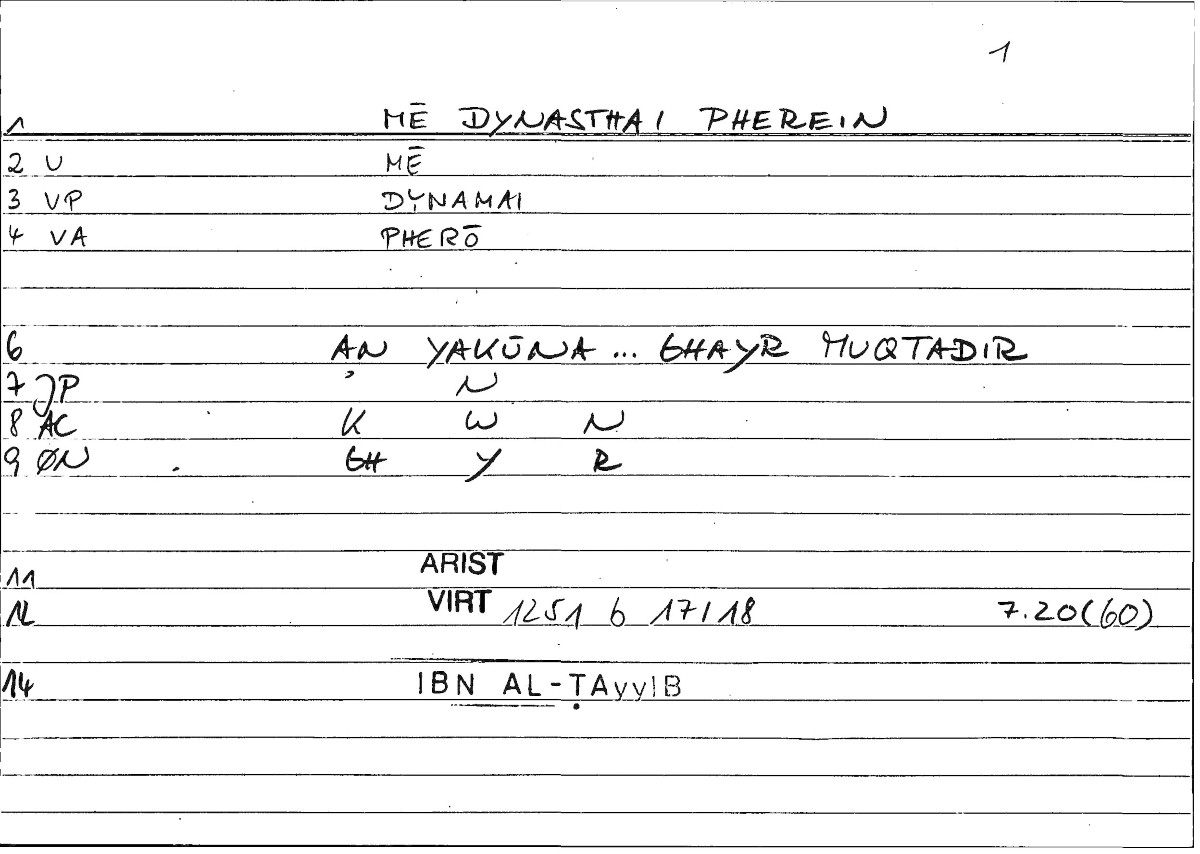 1
1 MĒ DYNASTHAI PHEREIN
2 U MĒ
3 VP DYNAMAI
4 VA PHERŌ
6 AN YAKŪNA... GHAYR MUQTADIR
7 JP ʾ N
8 AC K W N
9 ØN GH Y R
11 ARIST
12 VIRT 1251 b 17/18 7.20(60)
14 IBN AL-ṬAyyIB